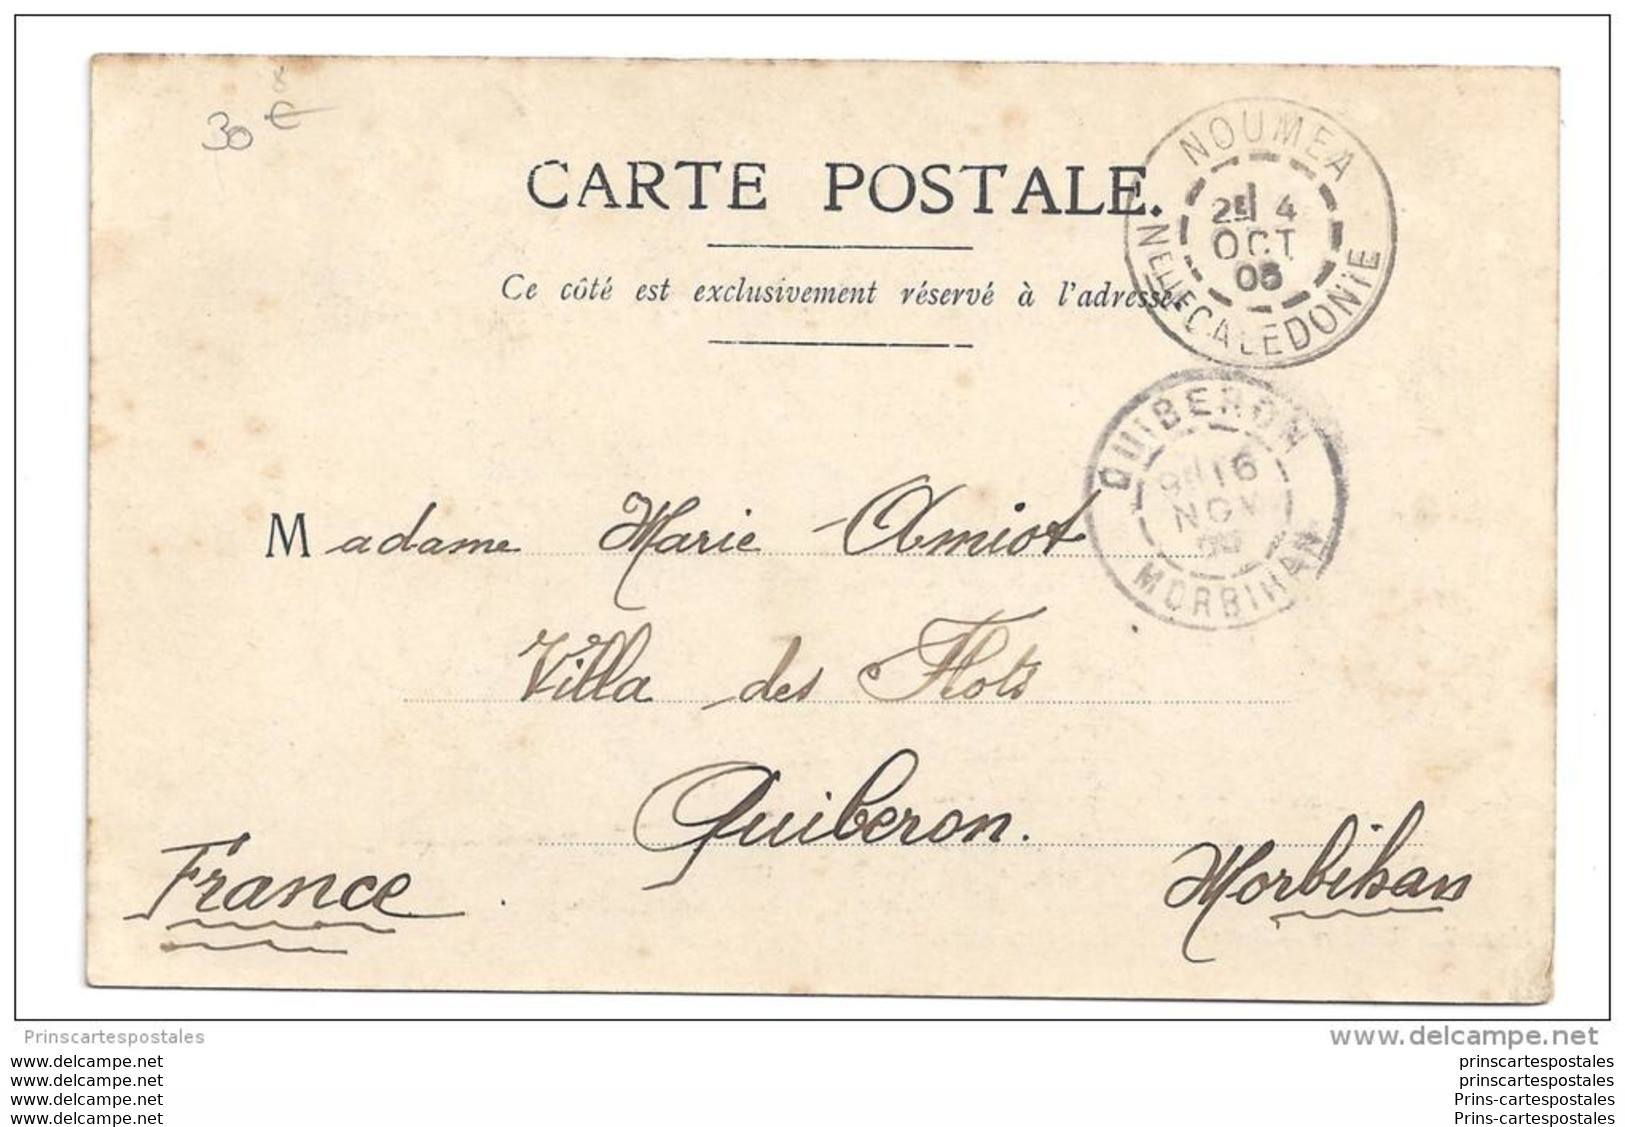 30 €
CARTE POSTALE.
Ce côté est exclusivement réservé à l'adresse.
NOUMEA
2E 4
OCT
05
NELLE CALEDONIE
QUIBERON
16
NOV
MORBIHAN
Madame Marie Amiot
Villa des Flots
Quiberon.
Morbihan
France
Prinscartespostales
www.delcampe.net
www.delcampe.net
prinscartespostales
www.delcampe.net
prinscartespostales
www.delcampe.net
Prins-cartespostales
www.delcampe.net
Prins-cartespostales